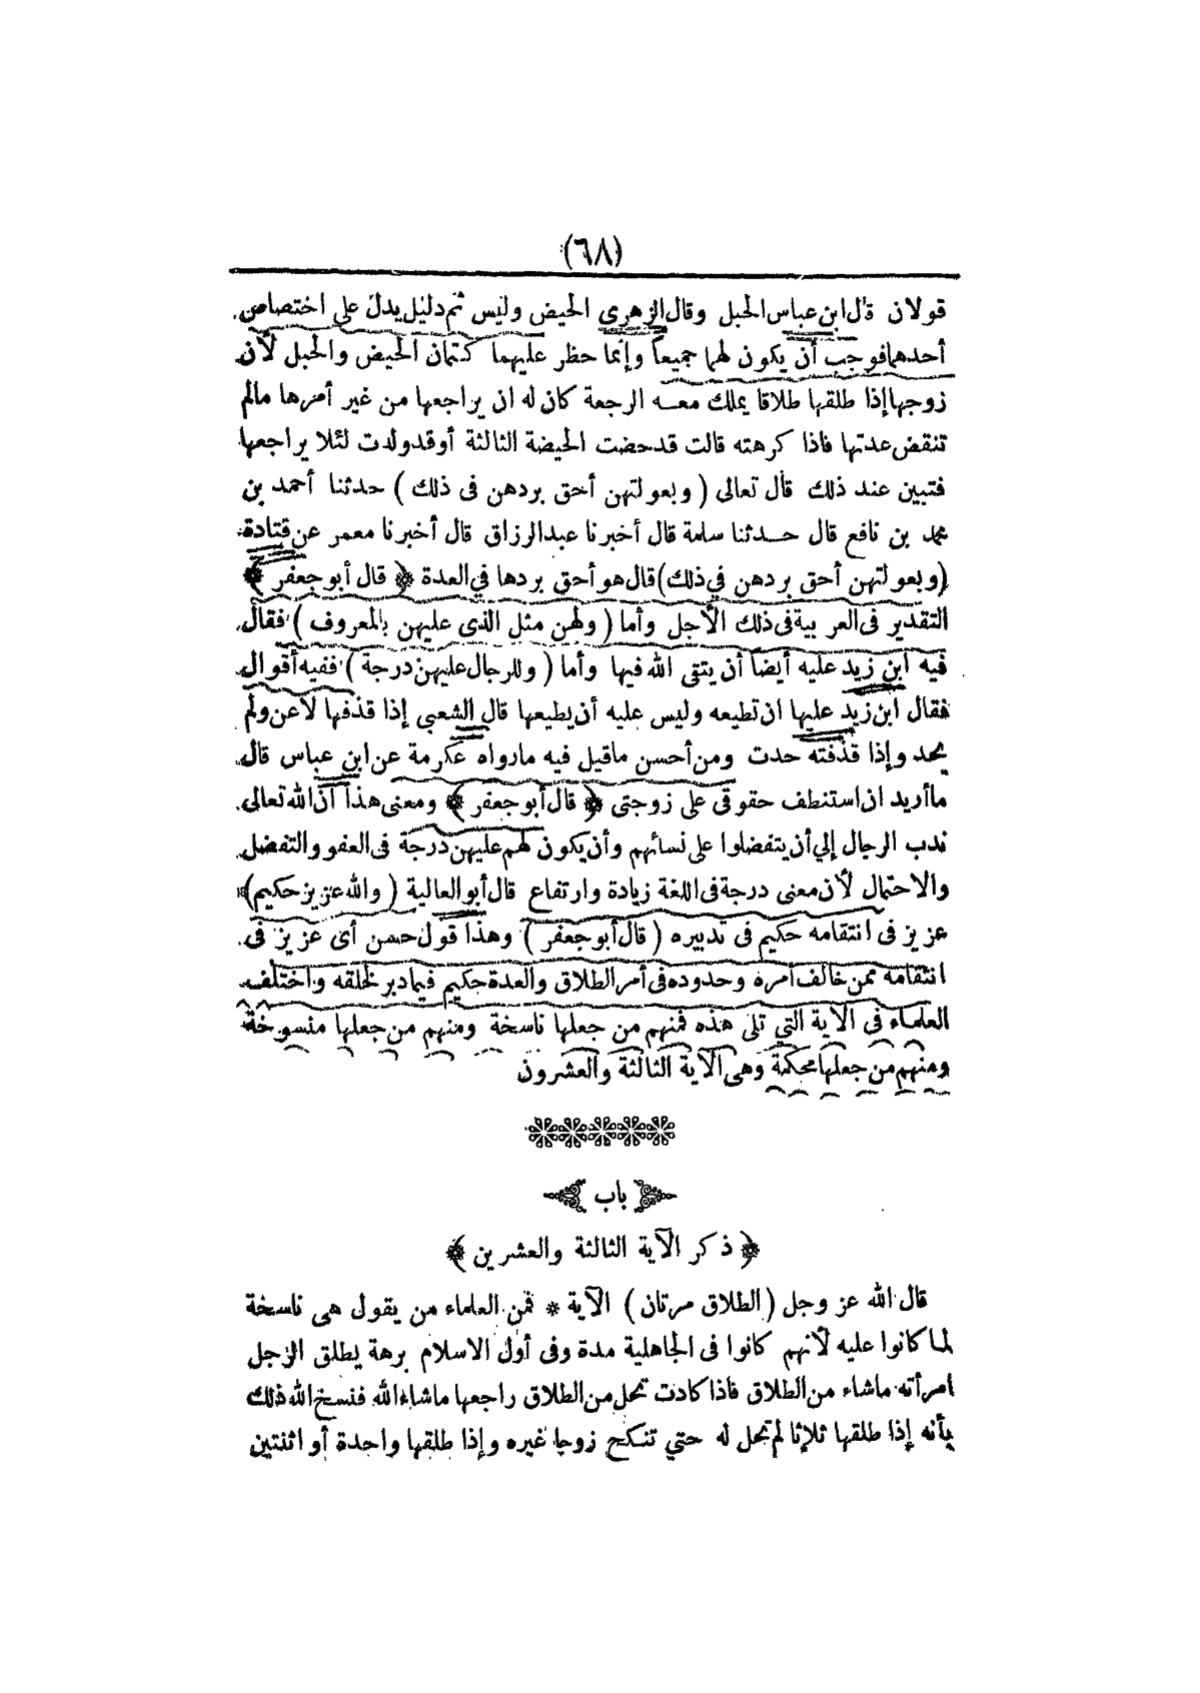 (٦٨)
قولان قال ابن عباس الحبل وقال الزهرى الحيض وليس ثم دليل يدل على اختصاص
أحدهما فوجب أن يكون لهما جميعاً وإنما حظر عليهما كتمان الحيض والحبل لأن
زوجها إذا طلقها طلاقا يملك معه الرجعة كان له ان يراجعها من غير أمرها مالم
تنقض عدتها فاذا كرهته قالت قد حضت الحيضة الثالثة أو قد ولدت لئلا يراجعها
فتبين عند ذلك قال تعالى ( وبعولتهن أحق بردهن فى ذلك ) حدثنا أحمد بن
محمد بن نافع قال حدثنا سلمة قال أخبرنا عبد الرزاق قال أخبرنا معمر عن قتادة
(وبعولتهن أحق بردهن في ذلك) قال هو أحق بردها في العدة ﴿ قال أبو جعفر ﴾
التقدير فى العربية فى ذلك الأجل وأما ( ولهن مثل الذى عليهن بالمعروف ) فقال
فيه ابن زيد عليه أيضاً أن يتقى الله فيها وأما ( وللرجال عليهن درجة ) ففيه أقوال
فقال ابن زيد عليها ان تطيعه وليس عليه أن يطيعها قال الشعبي إذا قذفها لاعن ولم
يحد وإذا قذفته حدت ومن أحسن ماقيل فيه مارواه عكرمة عن ابن عباس قال
ماأريد ان استنظف حقوقى على زوجتى ﴿ قال أبو جعفر ﴾ ومعنى هذا أن الله تعالى
ندب الرجال إلي أن يتفضلوا على نسائهم وأن يكون لهم عليهن درجة فى العفو والتفضل
والاحتمال لأن معنى درجة فى اللغة زيادة وارتفاع قال أبو العالية ( والله عزيز حكيم)
عزيز فى انتقامه حكيم فى تدبيره ( قال أبو جعفر ) وهذا قول حسن أى عزيز فى
انتقامه ممن خالف أمره وحدوده فى أمر الطلاق والعدة حكيم فيما دبر لخلقه واختلف
العلماء فى الآية التي تلى هذه فمنهم من جعلها ناسخة ومنهم من جعلها منسوخة
ومنهم من جعلها محكمة وهى الآية الثالثة والعشرون
باب
﴿ ذكر الآية الثالثة والعشرين ﴾
قال الله عز وجل ( الطلاق مرتان ) الآية * فمن العلماء من يقول هى ناسخة
لما كانوا عليه لأنهم كانوا فى الجاهلية مدة وفى أول الاسلام برهة يطلق الرجل
امرأته ماشاء من الطلاق فاذا كادت تحل من الطلاق راجعها ماشاء الله فنسخ الله ذلك
بأنه إذا طلقها ثلاثا لم تحل له حتي تنكح زوجا غيره وإذا طلقها واحدة أو اثنتين